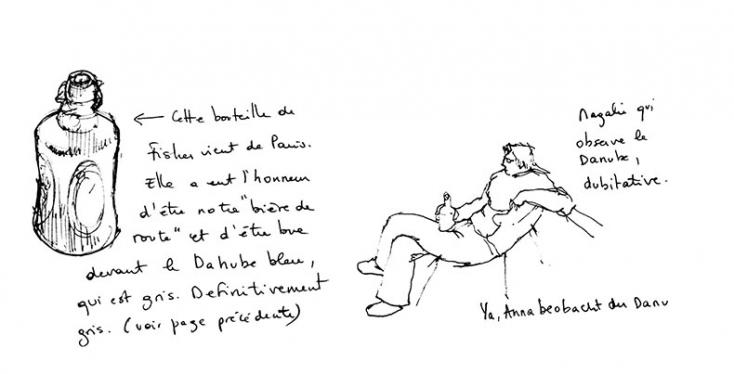 ← Cette bouteille de
Fisher vient de Paris.
Elle a eut l'honneur
d'être notre "bière de
route" et d'être bue
devant le Danube bleu,
qui est gris. Definitivement
gris. (voir page précédente)
Magalie qui
observe le
Danube,
dubitative.
Ya, Anna beobacht den Danu